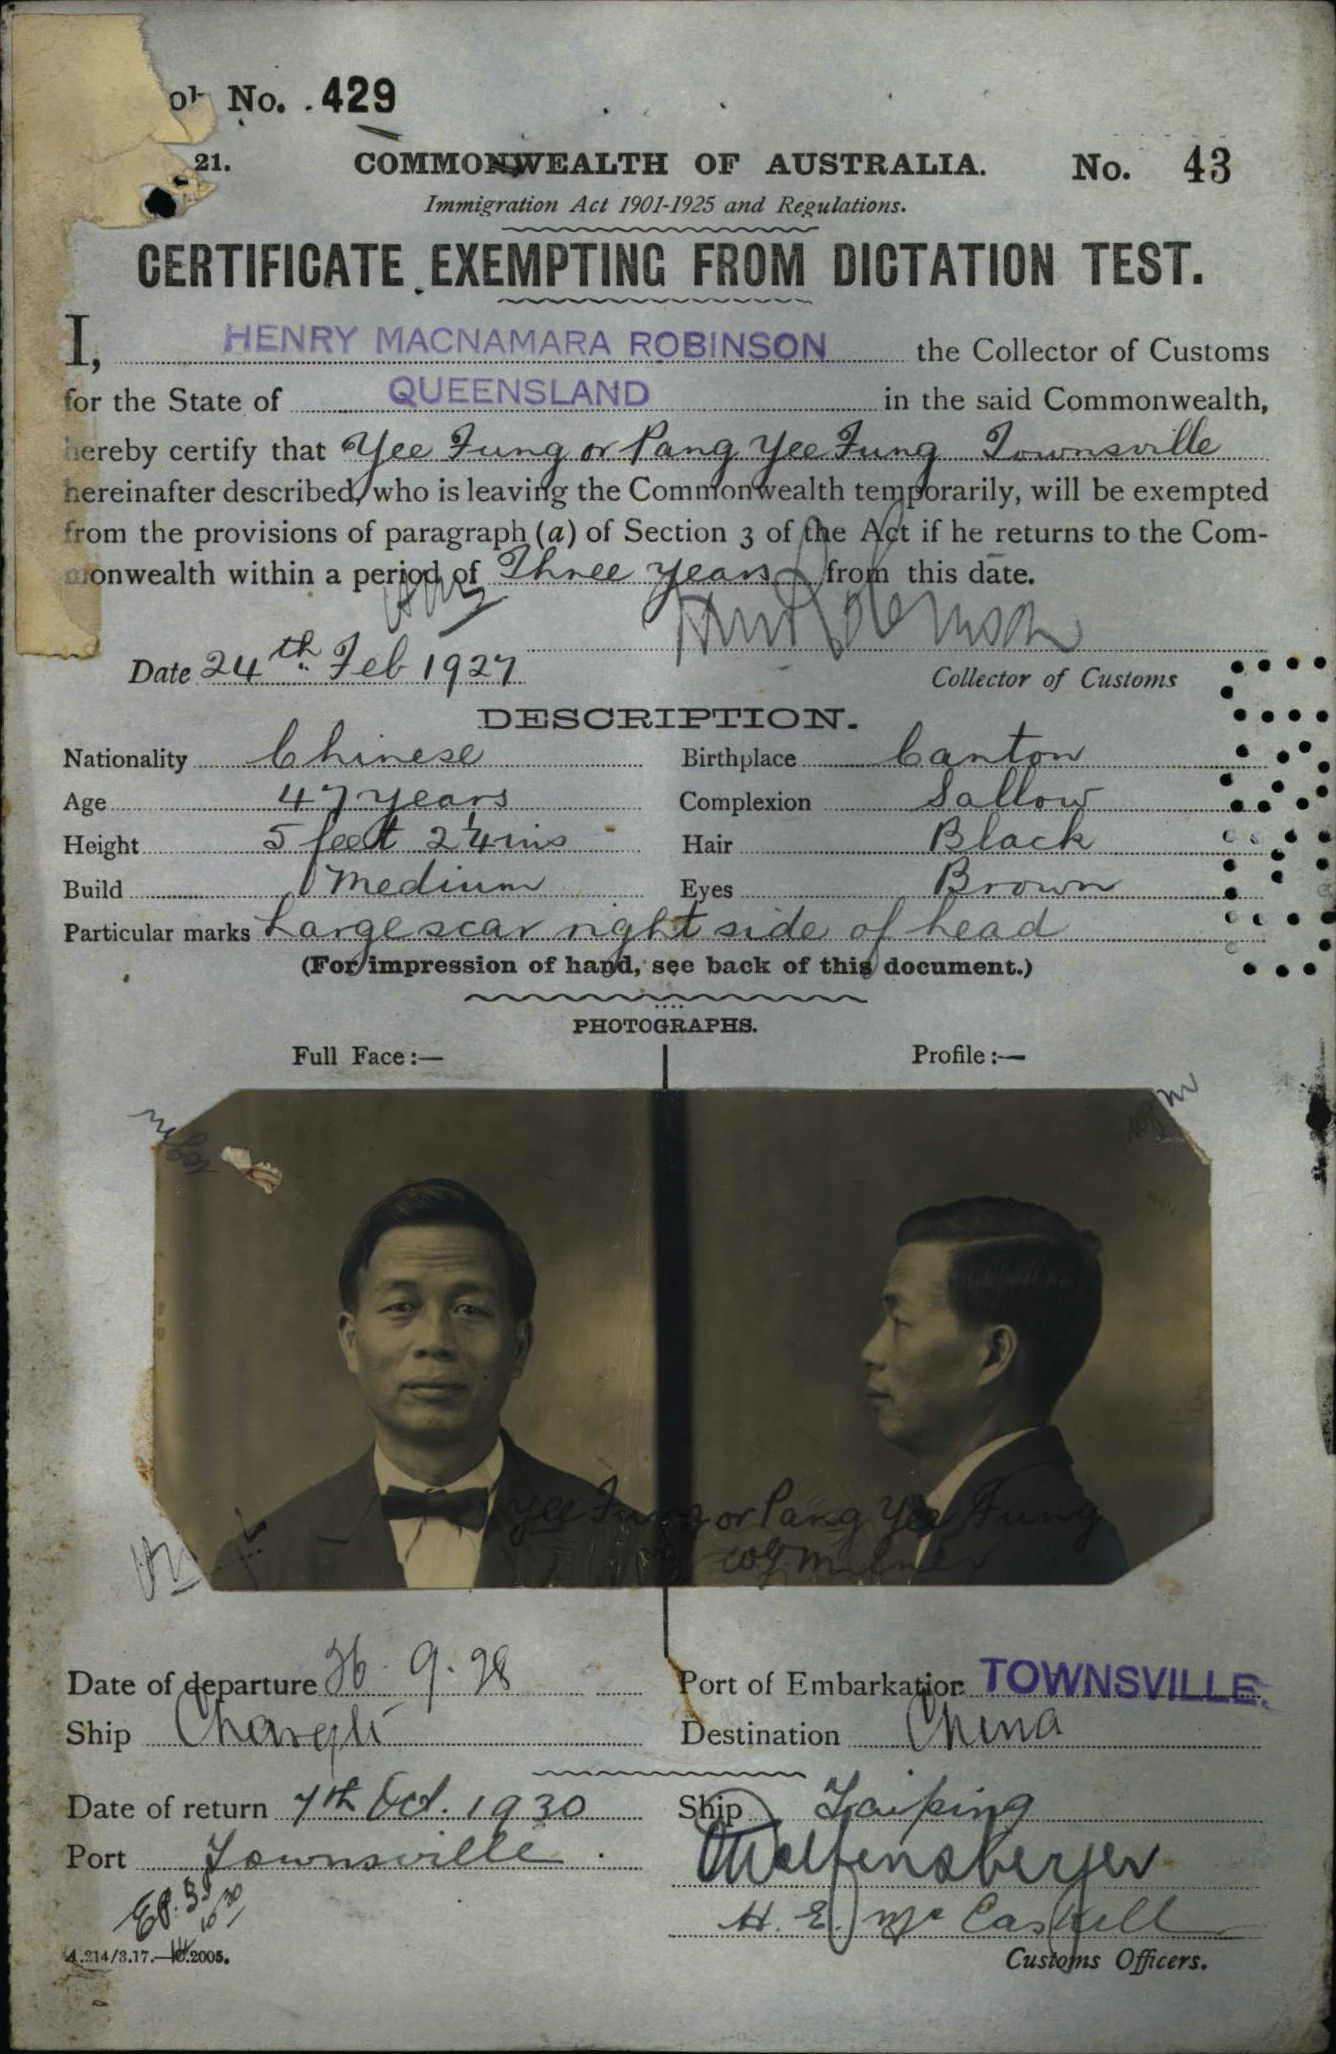 No. 429
21. COMMONWEALTH OF AUSTRALIA. No. 43
Immigration Act 1901-1925 and Regulations.
CERTIFICATE EXEMPTING FROM DICTATION TEST.
I, HENRY MACNAMARA ROBINSON the Collector of Customs
for the State of QUEENSLAND in the said Commonwealth,
hereby certify that Yee Fung or Pang Yee Fung Townsville
hereinafter described, who is leaving the Commonwealth temporarily, will be exempted
from the provisions of paragraph (a) of Section 3 of the Act if he returns to the Com-
monwealth within a period of Three years from this date.
Date 24th Feb 1927
Collector of Customs
DESCRIPTION.
Nationality Chinese Birthplace Canton
Age 47 years Complexion Sallow
Height 5 feet 2¼ ins Hair Black
Build Medium Eyes Brown
Particular marks Large scar right side of head
(For impression of hand, see back of this document.)
PHOTOGRAPHS.
Full Face:— Profile:—
Yee Fung or Pang Yee Fung
Date of departure 26.9.28 Port of Embarkation TOWNSVILLE.
Ship Destination China
Date of return 7th Oct. 1930 Ship Taiping
Port Townsville.
H. E. McCaskell
Customs Officers.